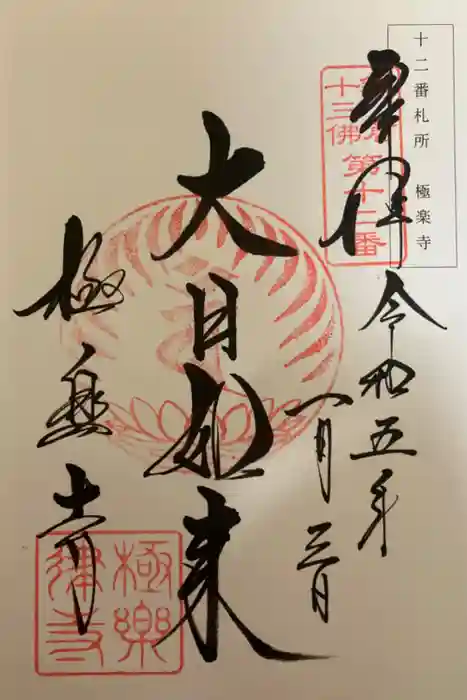 十二番札所 極楽寺
奉拝
十三佛
第十二番
令和五年
一月三日
大日如来
極楽寺
極樂
律寺